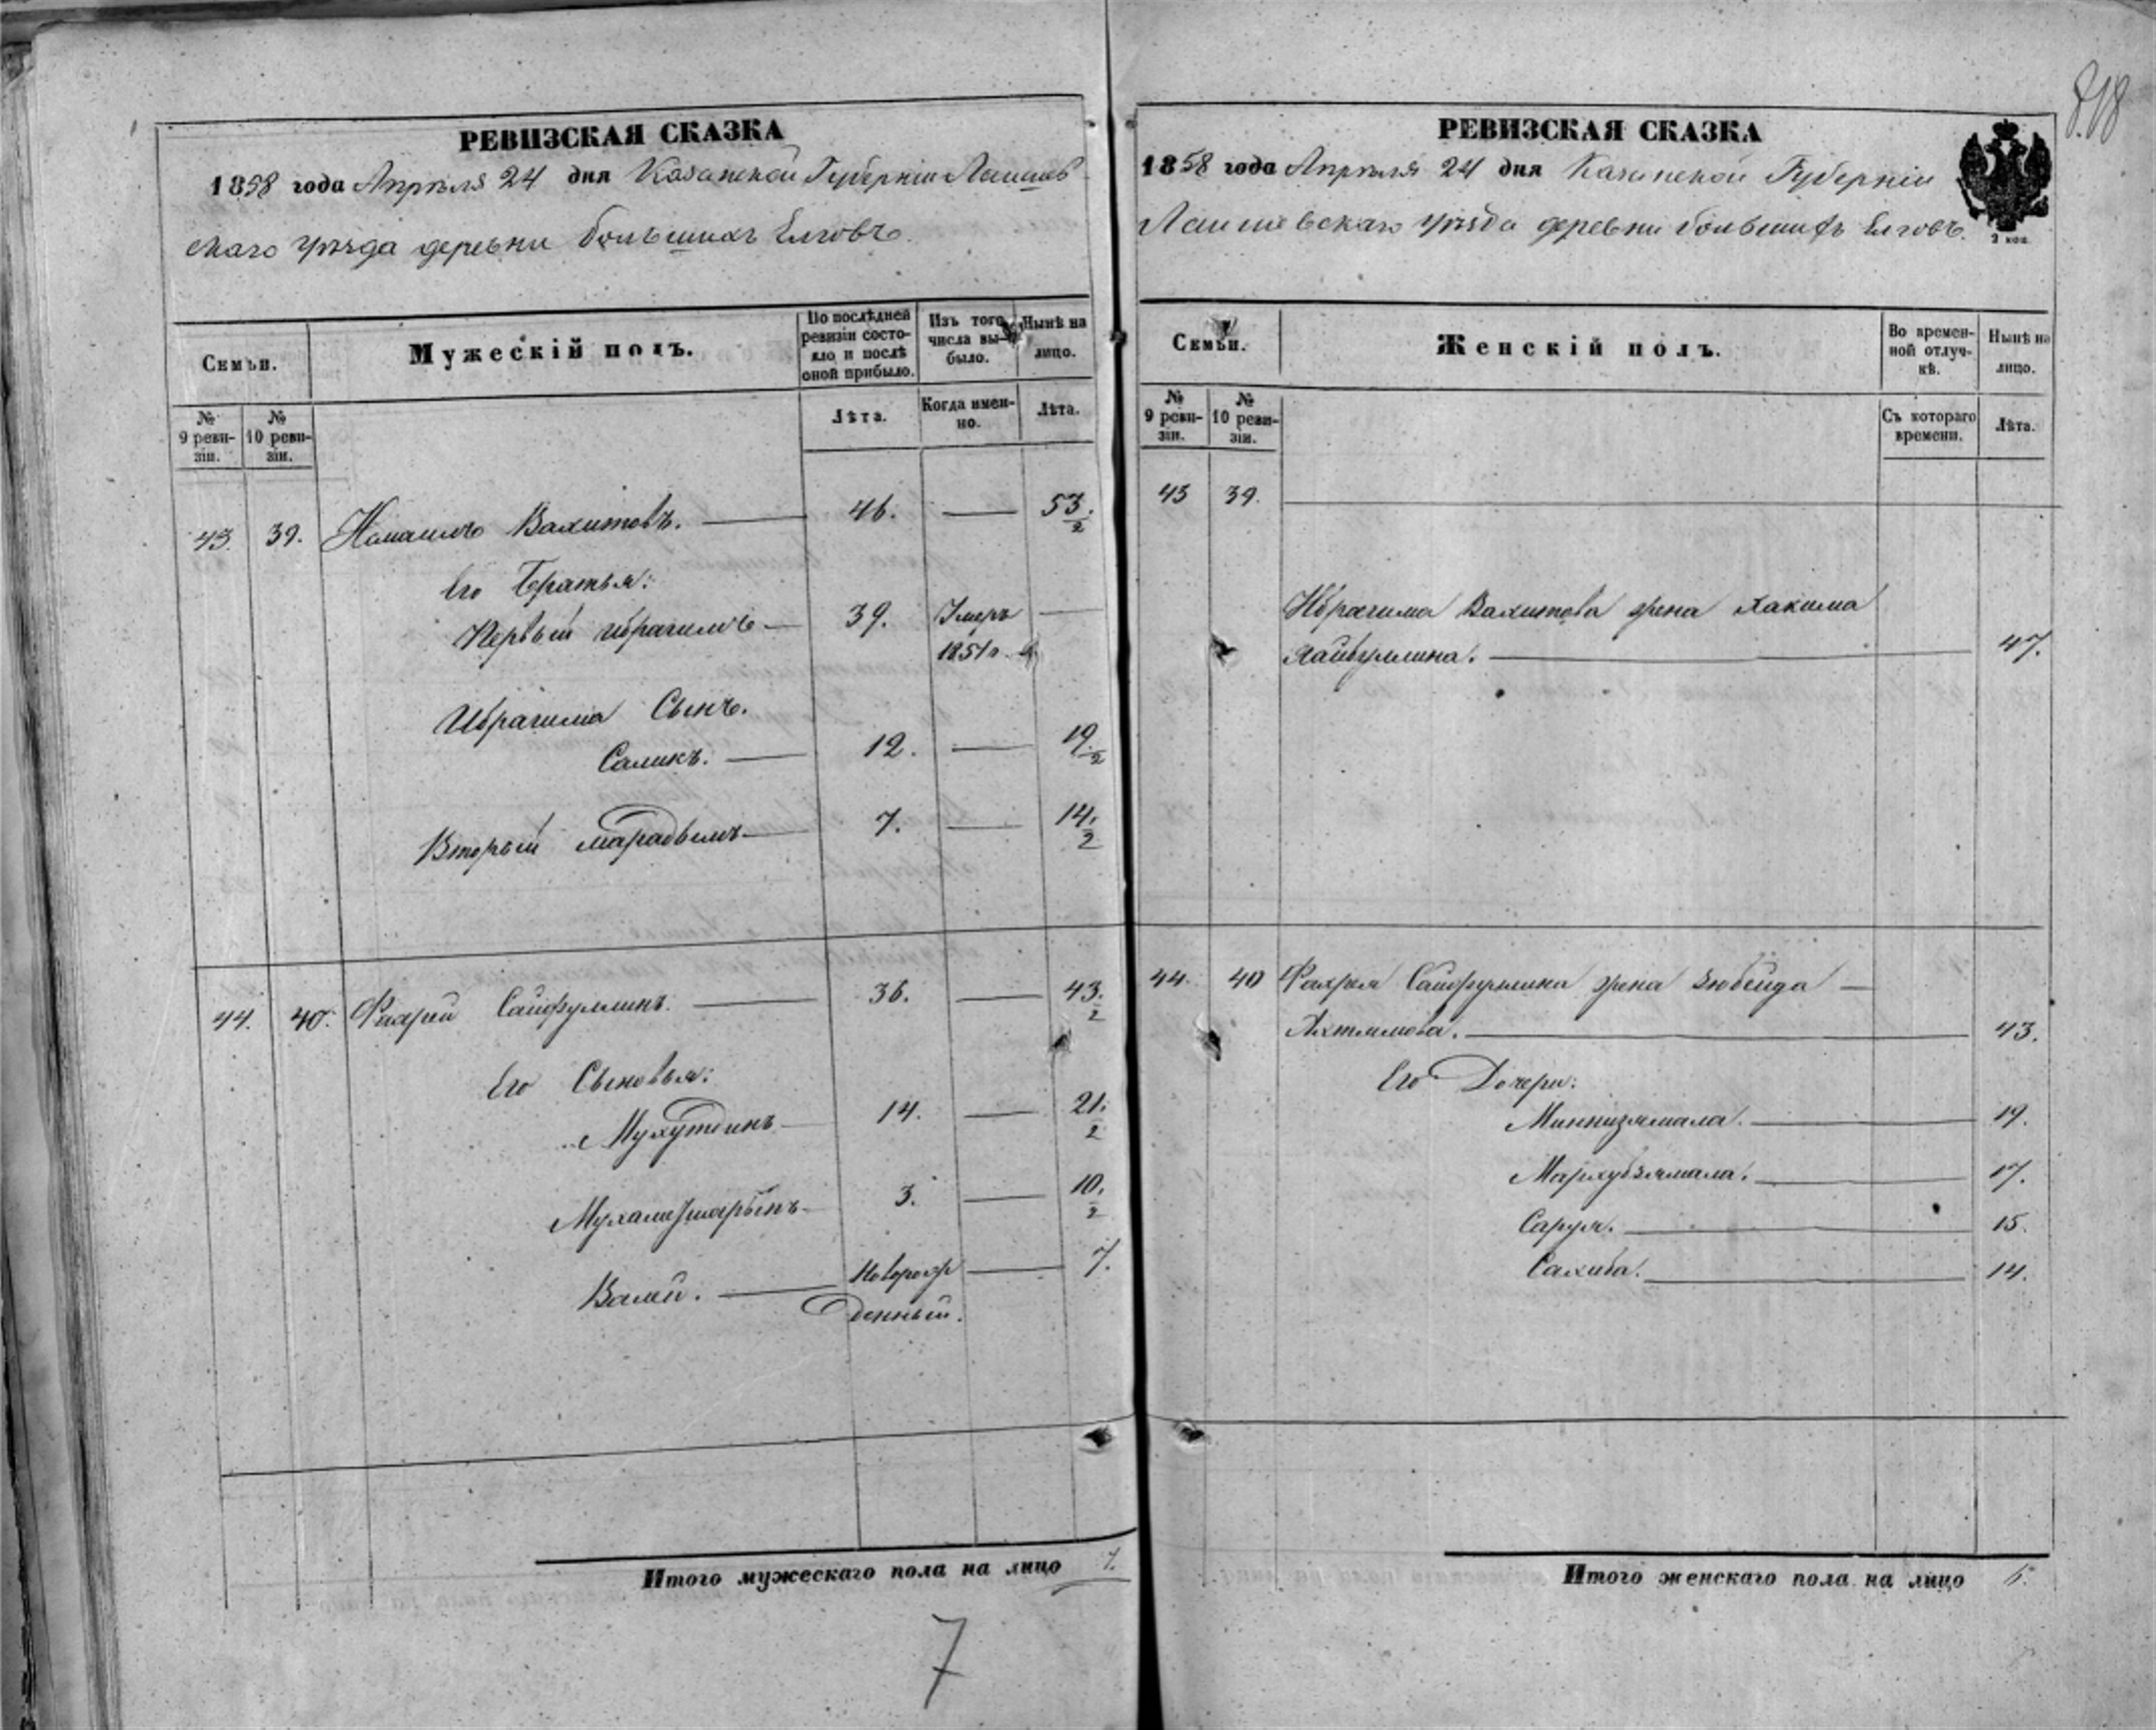 818
РЕВИЗСКАЯ СКАЗКА
1858 года Апрѣля 24 дня Казанской Губерніи Лаишев
скаго уѣзда деревни большихъ Елговъ.
Семьи.
Мужескій полъ.
По послѣдней ревизіи состояло и послѣ оной прибыло.
Изъ того числа выбыло.
Нынѣ на лицо.
№ 9 ревизіи.
№ 10 ревизіи.
Лѣта.
Когда именно.
Лѣта.
43. 39. Вахитовъ. 46. 53. 2
Его Братья:
Первый Ибрагимъ 39. Умеръ
185
Ибрагима Сынъ.
Саликъ. 12. 19. 2
Вторый 7. 14. 2
44. 40. Сайфуллинъ. 36. 43. 2
Его Сыновья:
Мухутдинъ 14. 21. 2
3. 10. 2
Валей. Новорож 7.
денный.
Итого мужескаго пола на лицо 7.
7
РЕВИЗСКАЯ СКАЗКА
1858 года Апрѣля 24 дня Казанской Губерніи
Лаишевскаго уѣзда деревни большихъ Елговъ.
2 коп.
Семьи.
Женскій полъ.
Во временной отлучкѣ.
Нынѣ на лицо.
№ 9 ревизіи.
№ 10 ревизіи.
Съ котораго времени.
Лѣта.
43 39.
Ибрагима Вахитова жена Хакима
47.
44. 40 Сайфуллина жена Зюбейда
Ахтямова. 43.
Его Дочери:
Миннизямала. 19.
17.
15.
Сахиба. 14.
Итого женскаго пола на лицо